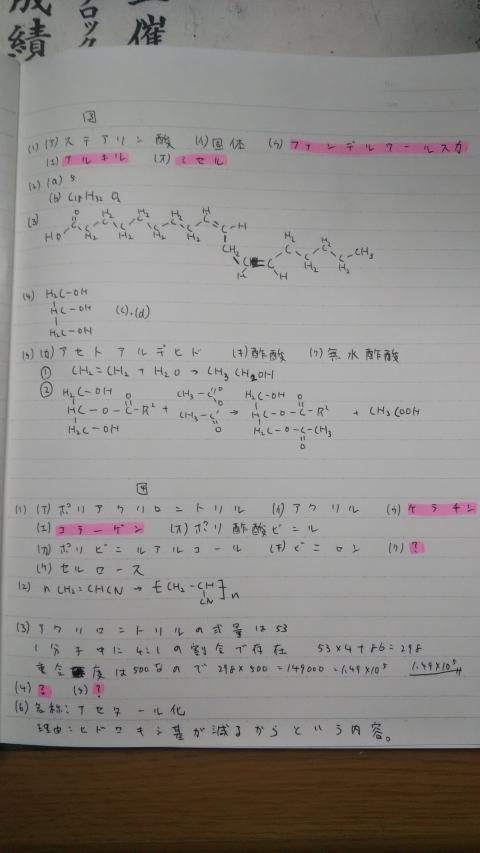 成績
ロック
催
3
(1) (ア) ステアリン酸 (イ) 固体 (ウ) ファンデルワールス力
(エ) アルキル (オ) ミセル
(2) (a) 8
(b) C18H32O2
(3)
O
HO-C
H2
C
H
CH2
CH3
(4) H2C-OH
HC-OH (c),(d)
H2C-OH
(5) (カ) アセトアルデヒド (キ) 酢酸 (ク) 無水酢酸
① CH2=CH2 + H2O → CH3CH2OH
② H2C-OH CH3-C=O H2C-OH
HC-O-C-R² + O → HC-O-C-R² + CH3COOH
H2C-OH CH3-C=O H2C-O-C-CH3
4
(1) (ア) ポリアクリロニトリル (イ) アクリル (ウ) ケラチン
(エ) コラーゲン (オ) ポリ酢酸ビニル
(カ) ポリビニルアルコール (キ) ビニロン (ク) ?
(ケ) セルロース
(2) n CH2=CHCN → [CH2-CH]n
CN
(3) アクリロニトリルの式量は53
1分子中に4:1の割合で存在 53×4+86=298
重合度は500なので 298×500=149000=1.49×10⁵ 1.49×10⁵
(4) ? (5) ?
(6) 名称:アセタール化
理由:ヒドロキシ基が減るからという内容。